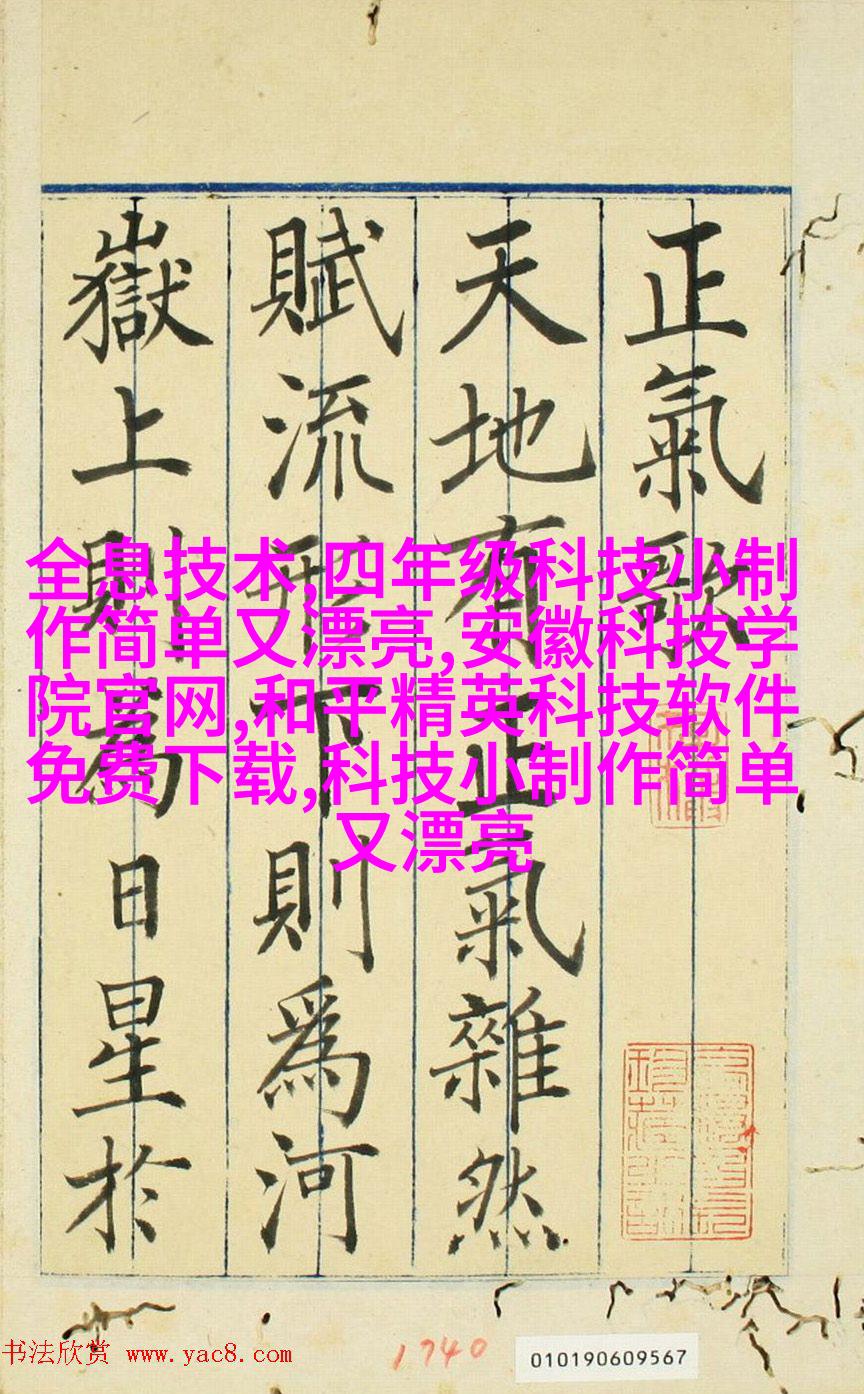 正氣歌
天地有正氣雜然
賦流形下則爲河
嶽上則爲日星於
全息技术,四年级科技小制
作简单又漂亮,安徽科技学
院官网,和平精英科技软件
免费下载,科技小制作简单
又漂亮
书法欣赏 www.yac8.com
1740
010190609567